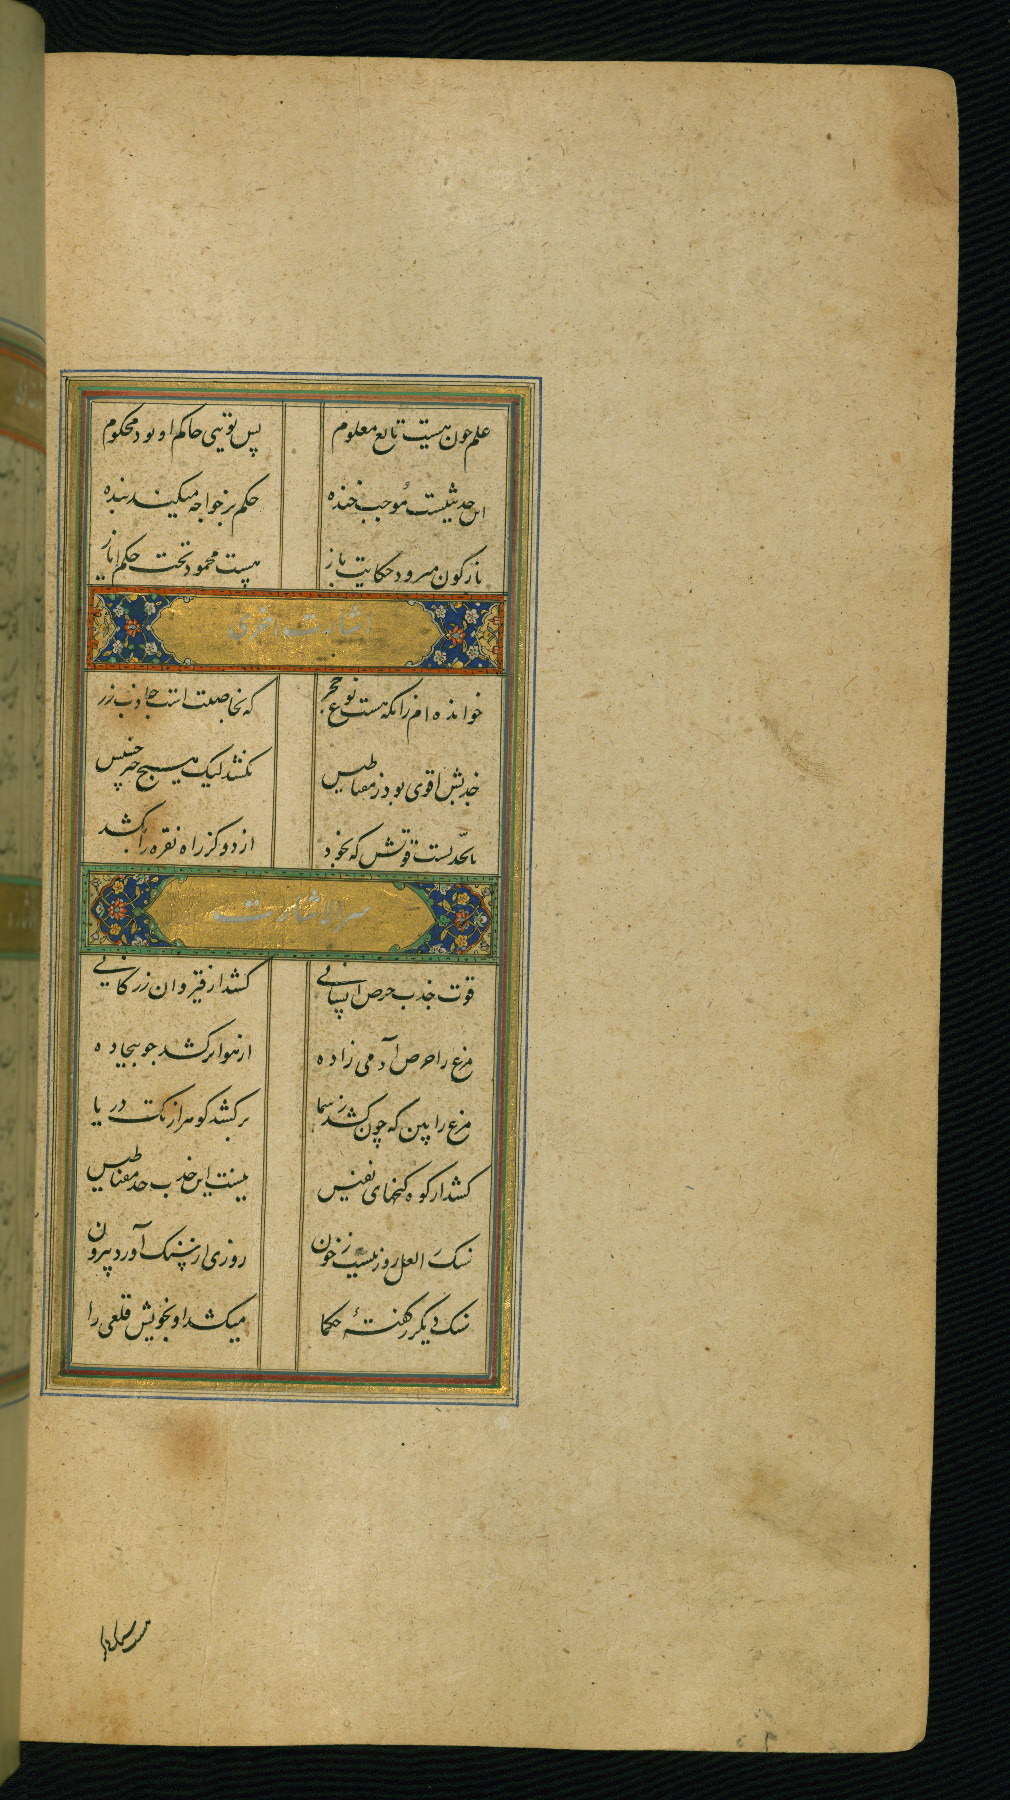 علم چون هست تابع معلوم پس تویی حاکم او بود محکوم
این حدیثیست موجب خنده حکم بر خواجه میکند بنده
بازکون میرود حکایت باز هست محمود تحت حکم ایاز
اشارت اخری
خوانده ام زانکه هست نوع حجر که بخاصیت است جاذب زر
جذبش اقوی بود ز مغناطیس نکشد لیک هیچ جز
بحدیست قوتش که بخود از دو کز راه نقره را بکشد
سر الاشارت
قوت جذب حرص انسانی کشد از قیروان زر کانی
مرغ را حرص آدمی زاده از هوا برکشد چو بیجاده
مرغ را بین که چون کشد ز سما برکشد کوهر از تک دریا
کشد از کوه کنجهای نفیس نیست این جذب حد مغناطیس
سنک العل روزیست ز خون روزی از سنک آورد بیرون
سنک دیکر کفته حکما میکشد او بخویش قلعی را